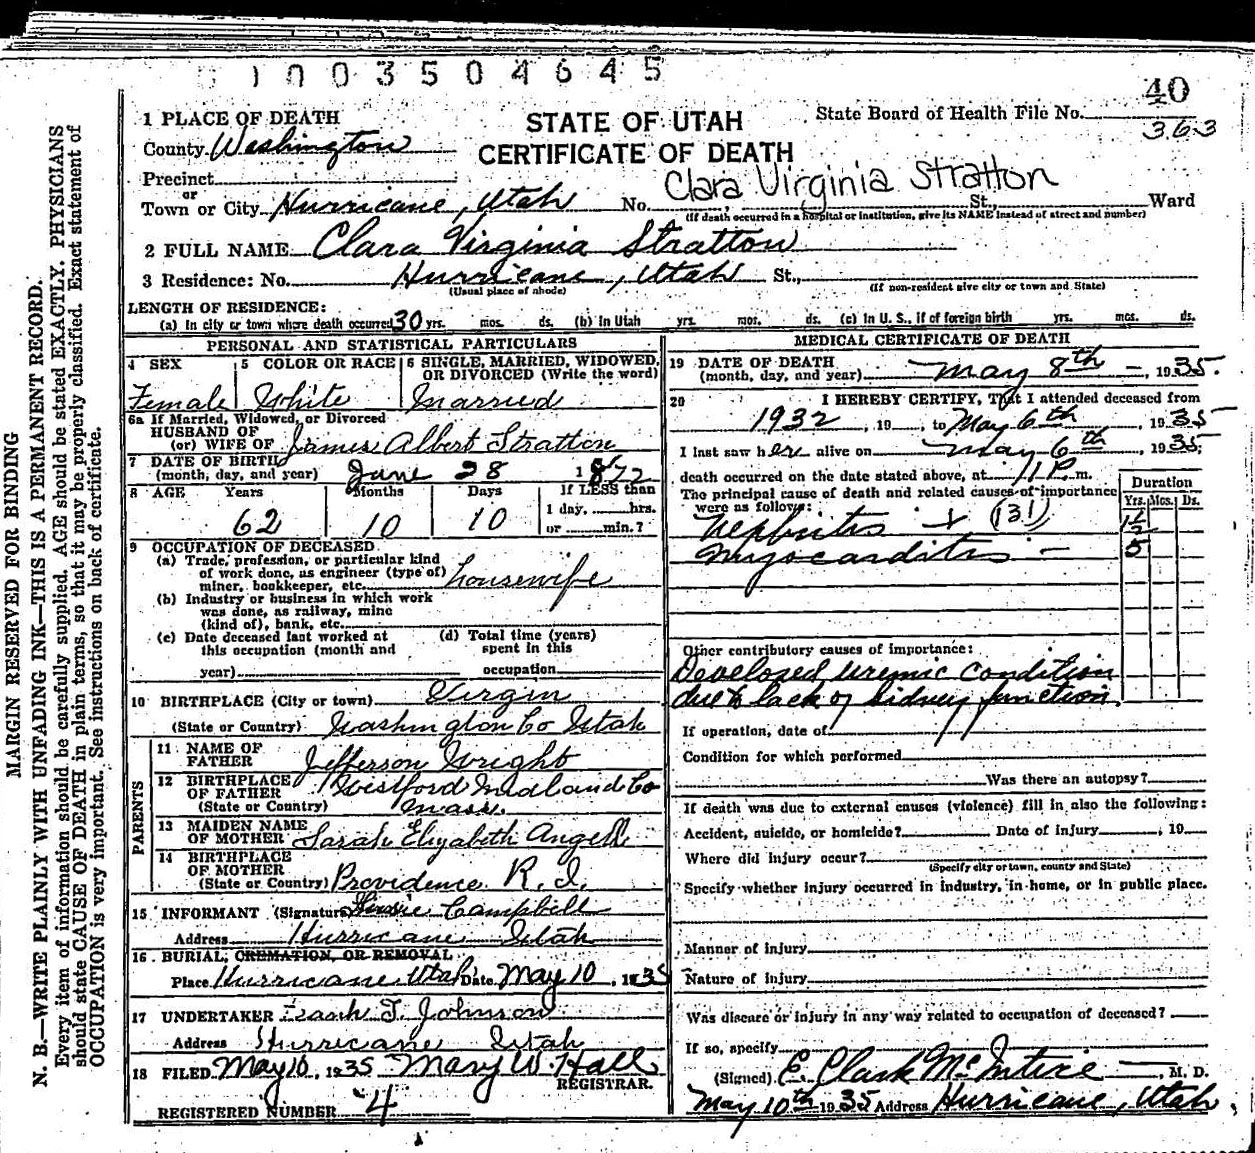 1003504645
40
363
1 PLACE OF DEATH
STATE OF UTAH
State Board of Health File No.
County Washington
CERTIFICATE OF DEATH
Precinct
Clara Virginia Stratton
or
Town or City Hurricane, Utah No. St., Ward
(If death occurred in a hospital or institution, give its NAME instead of street and number)
2 FULL NAME Clara Virginia Stratton
3 Residence: No. Hurricane, Utah St.,
(Usual place of abode) (If non-resident give city or town and State)
LENGTH OF RESIDENCE:
(a) In city or town where death occurred 30 yrs. mos. ds. (b) In Utah yrs. mos. ds. (c) In U. S., if of foreign birth yrs. mos. ds.
PERSONAL AND STATISTICAL PARTICULARS
4 SEX 5 COLOR OR RACE 6 SINGLE, MARRIED, WIDOWED,
OR DIVORCED (Write the word)
Female White Married
6a If Married, Widowed, or Divorced
HUSBAND OF
(or) WIFE OF James Albert Stratton
7 DATE OF BIRTH
(month, day, and year) June 28 1872
8 AGE Years Months Days If LESS than
1 day, hrs.
62 10 10 or min.?
9 OCCUPATION OF DECEASED
(a) Trade, profession, or particular kind
of work done, as engineer (type of)
miner, bookkeeper, etc. housewife
(b) Industry or business in which work
was done, as railway, mine
(kind of), bank, etc.
(c) Date deceased last worked at (d) Total time (years)
this occupation (month and spent in this
year) occupation
10 BIRTHPLACE (City or town) Virgin
(State or Country) Washington Co Utah
PARENTS
11 NAME OF
FATHER Jefferson Wright
12 BIRTHPLACE
OF FATHER Westford Midland Co
(State or Country) Mass.
13 MAIDEN NAME
OF MOTHER Sarah Elizabeth Angell
14 BIRTHPLACE
OF MOTHER
(State or Country) Providence R. I.
15 INFORMANT (Signature) Campbell
Address Hurricane Utah
16 BURIAL, CREMATION, OR REMOVAL
Place Hurricane Utah Date May 10, 1935
17 UNDERTAKER T. Johnson
Address Hurricane Utah
18 FILED May 10, 1935 Mary W. Hall
REGISTRAR.
REGISTERED NUMBER 4
MEDICAL CERTIFICATE OF DEATH
19 DATE OF DEATH
(month, day, and year) May 8th, 1935.
20 I HEREBY CERTIFY, That I attended deceased from
1932, 19, to May 6th, 1935
I last saw her alive on May 6th, 1935;
death occurred on the date stated above, at 11 P. m.
The principal cause of death and related causes of importance
were as follows:
Duration
Yrs. Mos. Ds.
Nephritis + (131) 1½
Myocarditis - 5
Other contributory causes of importance:
Developed uremic condition
due to lack of kidney function.
If operation, date of
Condition for which performed
Was there an autopsy?
If death was due to external causes (violence) fill in also the following:
Accident, suicide, or homicide? Date of injury, 19
Where did injury occur?
(Specify city or town, county and State)
Specify whether injury occurred in industry, in home, or in public place.
Manner of injury
Nature of injury
Was disease or injury in any way related to occupation of deceased?
If so, specify
(Signed) E. Clark McIntire, M. D.
May 10th 1935 Address Hurricane, Utah,
MARGIN RESERVED FOR BINDING
N. B.—WRITE PLAINLY WITH UNFADING INK—THIS IS A PERMANENT RECORD.
Every item of information should be carefully supplied. AGE should be stated EXACTLY. PHYSICIANS
should state CAUSE OF DEATH in plain terms, so that it may be properly classified. Exact statement of
OCCUPATION is very important. See instructions on back of certificate.